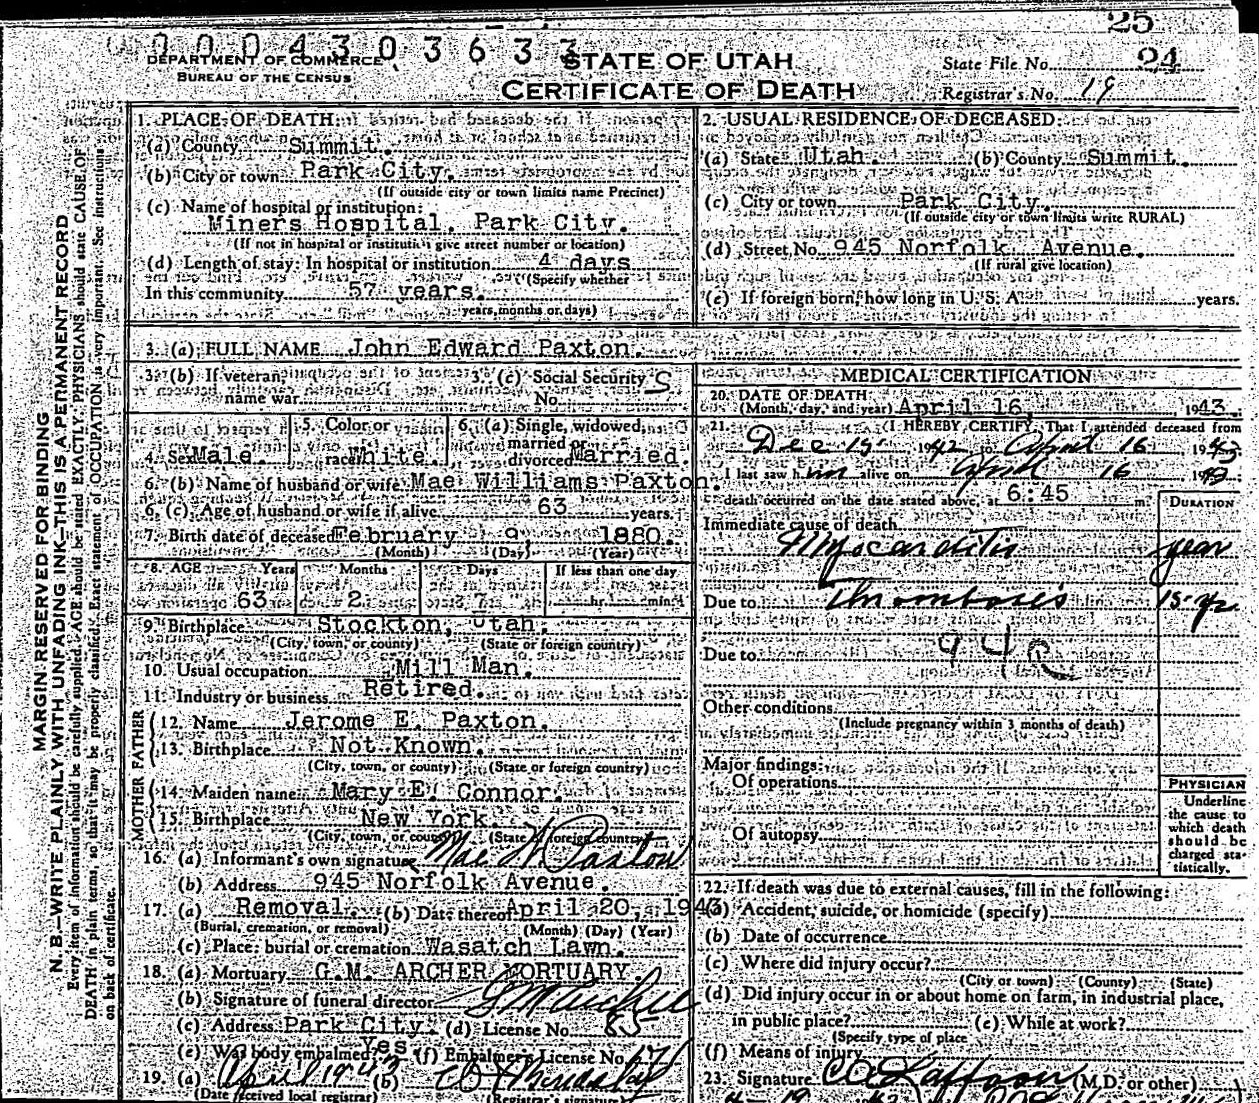 25
0 0 0 4 3 0 3 6 3 3
DEPARTMENT OF COMMERCE
BUREAU OF THE CENSUS
STATE OF UTAH
CERTIFICATE OF DEATH
State File No. 24
Registrar's No. 19
MARGIN RESERVED FOR BINDING
N. B.—WRITE PLAINLY WITH UNFADING INK—THIS IS A PERMANENT RECORD
Every item of information should be carefully supplied. AGE should be stated EXACTLY. PHYSICIANS should state CAUSE OF
DEATH in plain terms, so that it may be properly classified. Exact statement of OCCUPATION is very important. See instructions
on back of certificate.
1. PLACE OF DEATH:
(a) County Summit.
(b) City or town Park City.
(If outside city or town limits name Precinct)
(c) Name of hospital or institution:
Miners Hospital, Park City.
(If not in hospital or institution give street number or location)
(d) Length of stay: In hospital or institution 4 days
(Specify whether
In this community 57 years.
years, months or days)
2. USUAL RESIDENCE OF DECEASED:
(a) State Utah. (b) County Summit.
(c) City or town Park City.
(If outside city or town limits write RURAL)
(d) Street No. 945 Norfolk Avenue.
(If rural give location)
(e) If foreign born, how long in U. S. A. years.
3. (a) FULL NAME John Edward Paxton.
3. (b) If veteran, name war
3. (c) Social Security No. S
4. Sex Male.
5. Color or race White.
6. (a) Single, widowed, married or divorced Married.
6. (b) Name of husband or wife Mae Williams Paxton.
6. (c) Age of husband or wife if alive 63 years.
7. Birth date of deceased February 9, 1880.
(Month) (Day) (Year)
8. AGE Years Months Days If less than one day
63 2 7 hr. min.
9. Birthplace Stockton, Utah.
(City, town, or county) (State or foreign country)
10. Usual occupation Mill Man.
11. Industry or business Retired.
FATHER
12. Name Jerome E. Paxton.
13. Birthplace Not Known.
(City, town, or county) (State or foreign country)
MOTHER
14. Maiden name Mary E. Connor.
15. Birthplace New York.
(City, town, or county) (State or foreign country)
16. (a) Informant's own signature Mae W Paxton
(b) Address 945 Norfolk Avenue.
17. (a) Removal. (b) Date thereof April 20, 1943
(Burial, cremation, or removal) (Month) (Day) (Year)
(c) Place: burial or cremation Wasatch Lawn.
18. (a) Mortuary G.M. ARCHER MORTUARY.
(b) Signature of funeral director G M Archer
(c) Address Park City. (d) License No. 85
(e) Was body embalmed? Yes (f) Embalmer's License No.
19. (a) April 19 43 (b)
(Date received local registrar) (Registrar's signature)
MEDICAL CERTIFICATION
20. DATE OF DEATH
(Month, day, and year) April 16, 1943.
21. I HEREBY CERTIFY, That I attended deceased from
Dec 15 1942 to April 16 1943
I last saw him alive on April 16 1943
death occurred on the date stated above, at 6:45 m.
DURATION
Immediate cause of death
Myocarditis year
Due to Thrombosis
Due to
94
Other conditions
(Include pregnancy within 3 months of death)
Major findings:
Of operations
Of autopsy
PHYSICIAN
Underline
the cause to
which death
should be
charged sta-
tistically.
22. If death was due to external causes, fill in the following:
(a) Accident, suicide, or homicide (specify)
(b) Date of occurrence
(c) Where did injury occur?
(City or town) (County) (State)
(d) Did injury occur in or about home on farm, in industrial place,
in public place? (e) While at work?
(Specify type of place
(f) Means of injury
23. Signature (M.D. or other)